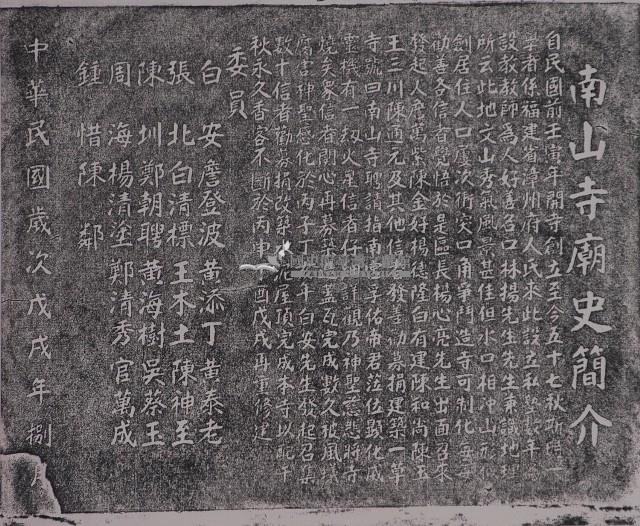 南山寺廟史簡介
自民國前壬寅年開寺創立至今五十七秋斯時一
學者係福建省漳州府人氏來此設立私塾數年
設教教師為人好善名口林揚先生先生兼識地理
所云此地文山秀氣風景甚佳但水口相沖山形
劍居住人口屢次衝突口角爭鬥造寺可制化
勸善各信者覺悟於是區長楊心亮先生出面召來
發起人詹萬紫陳金好楊德隆白有建陳和尚陳玉
王三川陳通元及其他信 發善 募捐建築一草
寺號曰南山寺聘請指南宮孚佑帝君蒞位顯化威
靈機有一 火星信者仔細詳觀乃神聖慈悲將寺
燒矣眾信者開心再募築 蓋瓦完成數久被風
害神聖感化於丙子丁 年白安先生發起召集
數十信者勸募捐改築 泥屋頂完成本寺以配千
秋永久香客不斷於丙申 酉戊戌再重修造
委員
白 安 詹登波 黃添丁 黃泰老
張 北 白清標 王木土 陳神至
陳 圳 鄭朝聘 黃海樹 吳蔡玉
周 海 楊清塗 鄭清秀 官萬成
鍾 惜 陳 鄰
中華民國歲次戊戌年捌月